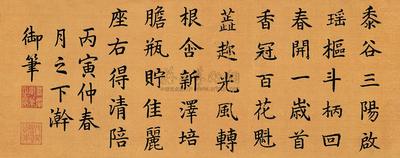 黍谷三陽啟
瑶樞斗柄回
春開一嵗首
香冠百花魁
蕋趂光風轉
根含新澤培
膽瓶貯佳麗
座右得清陪
丙寅仲春
月之下澣
御筆